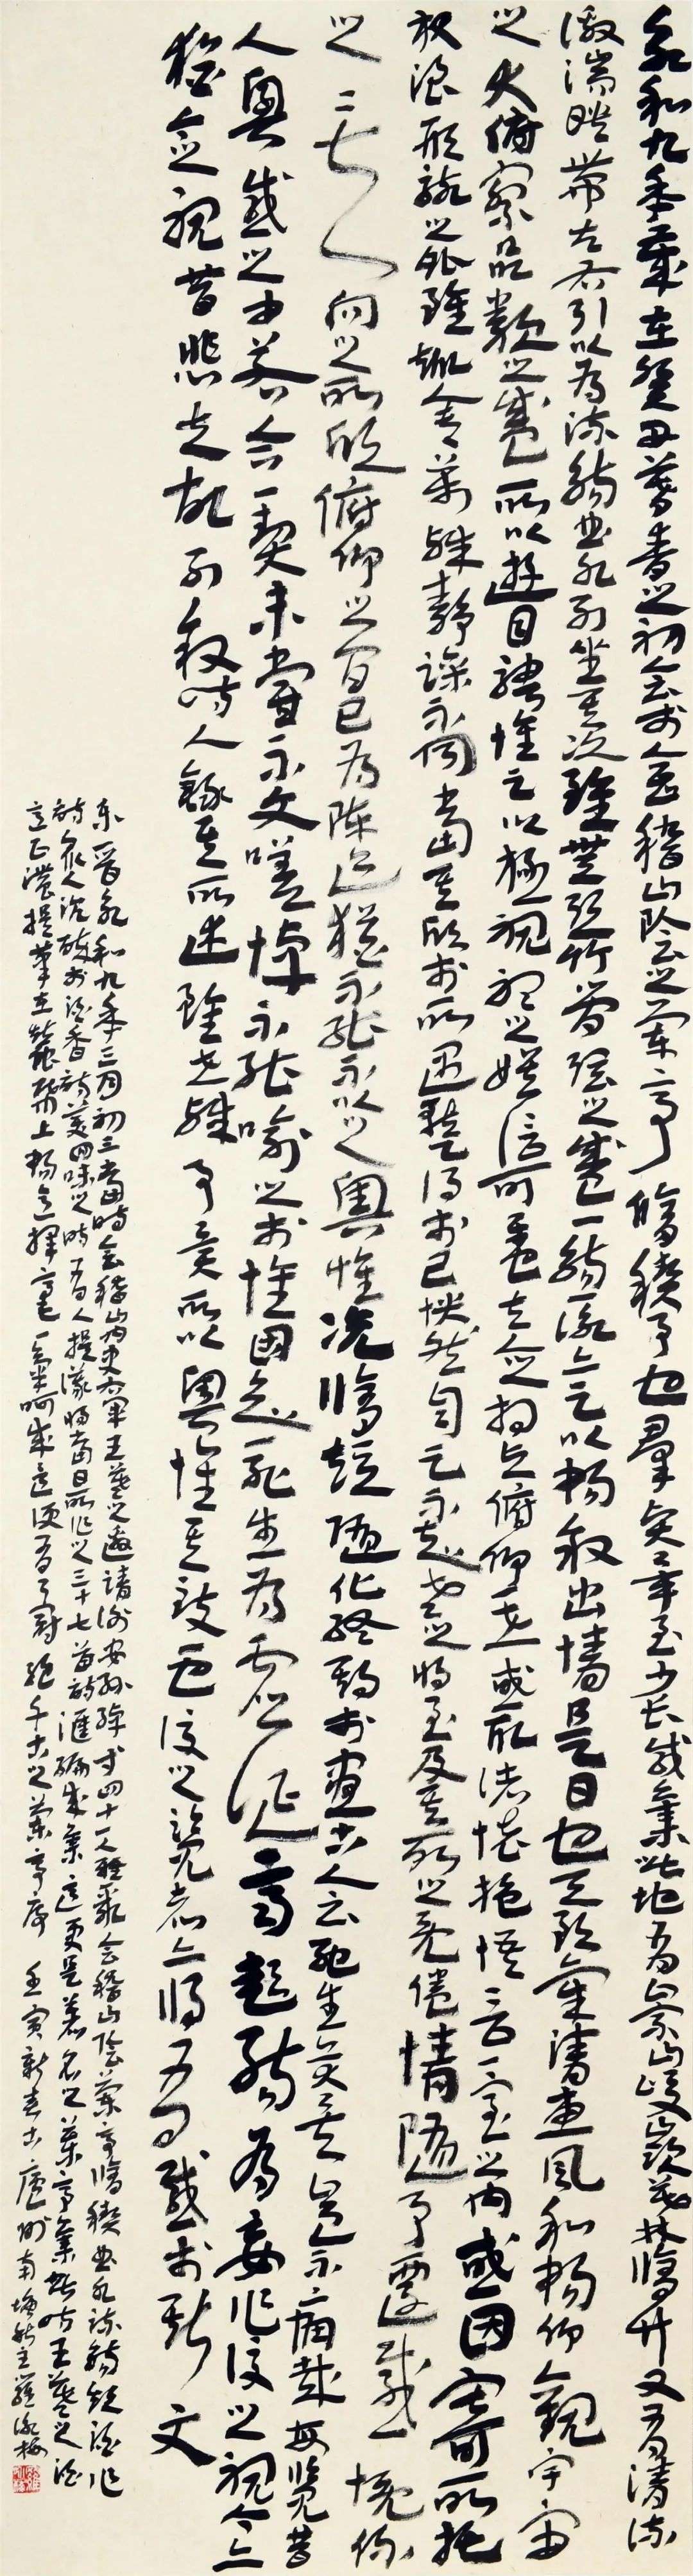 永和九年歲在癸丑暮春之初會於會稽山陰之蘭亭脩稧事也群賢畢至少長咸集此地有崇山峻嶺茂林脩竹又有清流
激湍暎帶左右引以為流觴曲水列坐其次雖無絲竹管弦之盛一觴一詠亦足以暢敘幽情是日也天朗氣清惠風和暢仰觀宇宙
之大俯察品類之盛所以遊目騁懷足以極視聽之娛信可樂也夫人之相與俯仰一世或取諸懷抱悟言一室之內或因寄所託
放浪形骸之外雖趣舍萬殊靜躁不同當其欣於所遇蹔得於己怏然自足不知老之將至及其所之既倦情隨事遷感慨係
之矣向之所欣俯仰之間已為陳迹猶不能不以之興懷況脩短隨化終期於盡古人云死生亦大矣豈不痛哉每覽昔
人興感之由若合一契未嘗不臨文嗟悼不能喻之於懷固知一死生為虛誕齊彭殤為妄作後之視今亦
猶今之視昔悲夫故列敘時人錄其所述雖世殊事異所以興懷其致一也後之覽者亦將有感於斯文
東晉永和九年三月初三當時會稽山內史右軍王羲之邀請謝安孫綽等四十一人雅聚會稽山陰蘭亭脩稧曲水流觴飲酒作
詩眾人沉醉於酒香詩美回味之時有人提議將當日所作之三十七首詩匯編成集這更是著名之蘭亭集此時王羲之酒
意正濃提筆在蠶紙上暢意揮毫一氣呵成這便有了冠絕千古之蘭亭序 壬寅新春古廬州南塘主羅永梅